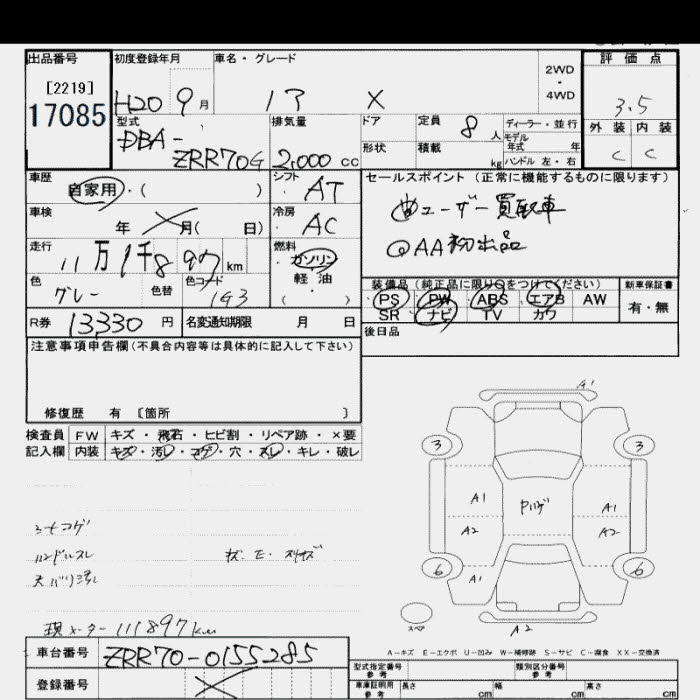 出品番号 初度登録年月 車名・グレード 2WD・4WD 評価点
[2219]
17085
H20 9月 X 3.5
型式 排気量 ドア 定員 8人 ディーラー・並行
モデル年式 年
外装 内装
DBA-ZRR70G 2,000cc 形状 積載 kg ハンドル 左・右 C C
車歴 シフト セールスポイント (正常に機能するものに限ります)
自家用・( ) AT
ユーザー買取車
車検 冷房
年 月( 日) AC
AA初出品
走行 燃料
11万1千897km ガソリン
軽油
( )
色 色替 色コード
グレー 1G3
装備品(純正品に限り○をつけてください) 新車保証書
PS PW ABS エアB AW 有・無
SR ナビ TV カワ
R券 13330円 名変通知期限 月 日
後日品
注意事項申告欄(不具合内容等は具体的に記入して下さい)
修復歴 有 〔箇所 〕
検査員 FW キズ・飛石・ヒビ割・リペア跡・×要
記入欄 内装 キズ・汚レ・コゲ・穴・スレ・キレ・破レ
A1
3 3
A1 A1
A2 A2
6 A1 6
A2
シートコゲ
ハンドルスレ
天バリ汚レ
現メーター 111897km
スペア
A-キズ E-エクボ U-凹み W-補修跡 S-サビ C-腐食 XX-交換済
車台番号 ZRR70-0155285
型式指定番号 参考 類別区分番号 参考
登録番号
車庫証明用 参考 長さ cm 幅 cm 高さ cm